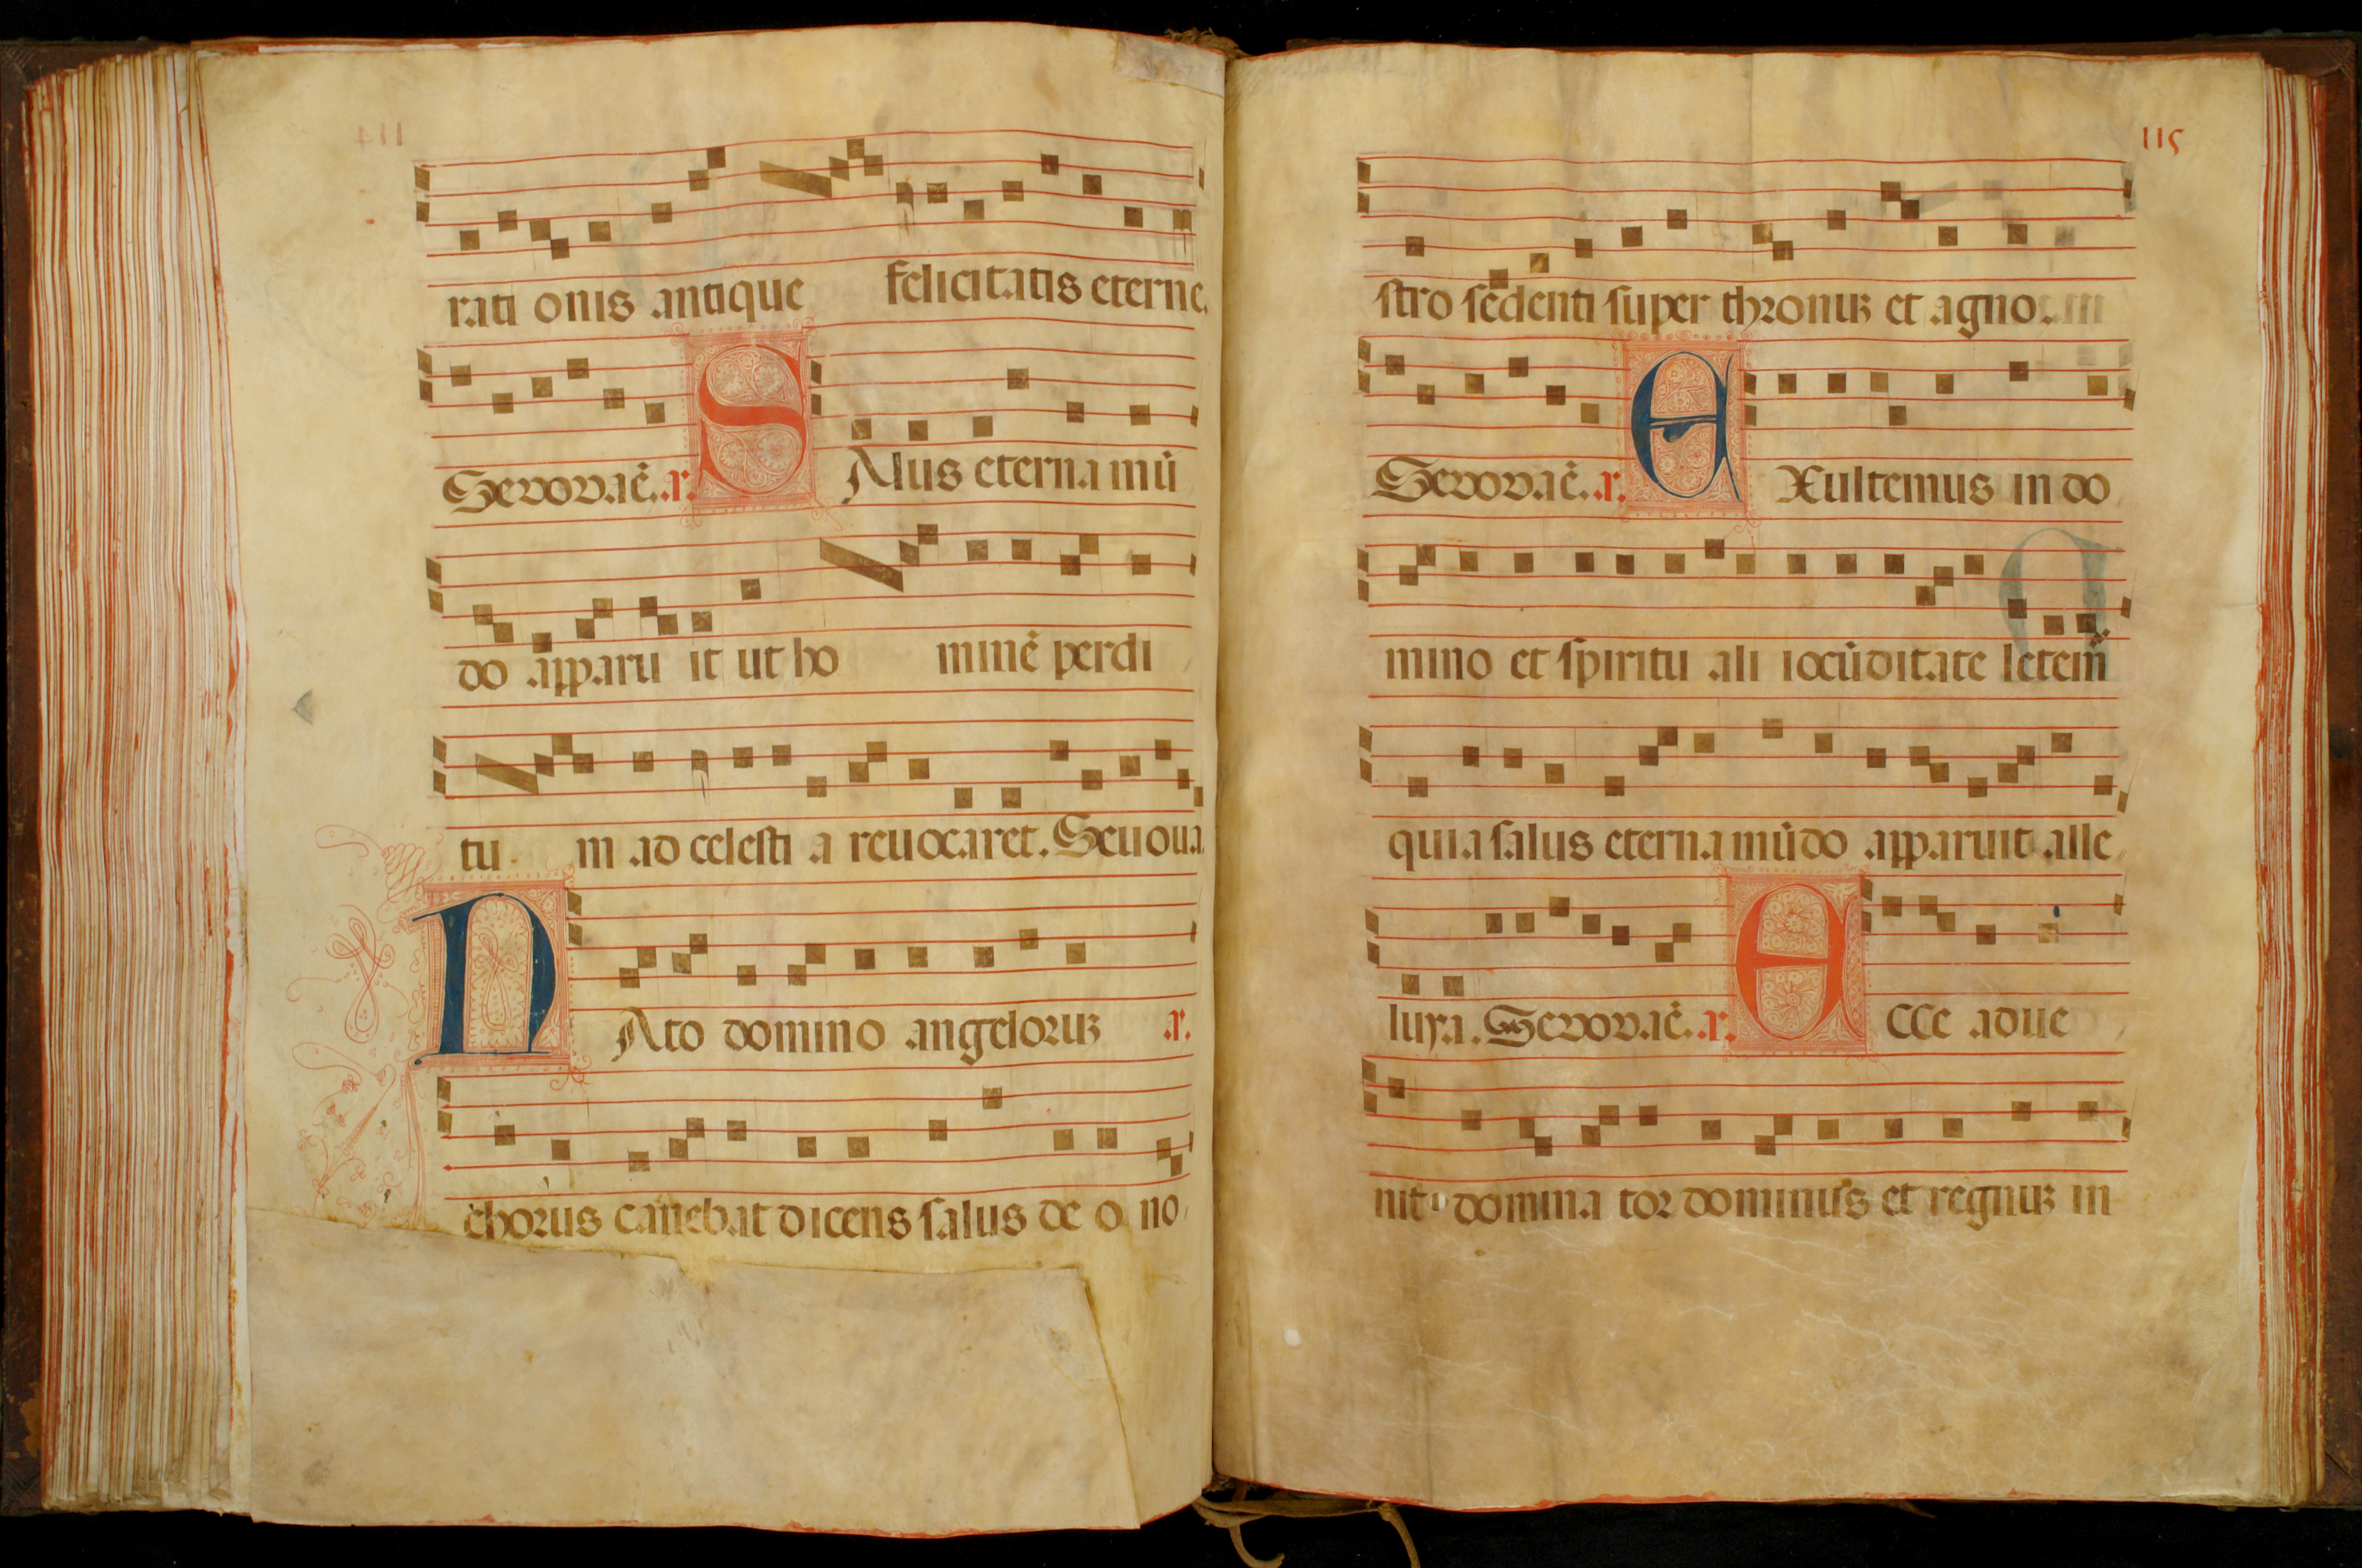 rati onis antique felicitatis eterne.
Sevovaē. a. SAlus eterna mū
do apparu it ut ho minē perdi
tu m ad celesti a reuocaret. Seuoua
NAto domino angeloruꝫ a.
chorus canebat dicens salus deo no
115
stro sedenti super thronuꝫ et agno.
Sevovaē. a. EXultemus in do
mino et spiritu ali iocūditate letem̄
quia salus eterna mūdo apparuit alle
luya. Sevovaē. a. ECCe adue
nit dominator dominus et regnuꝫ in